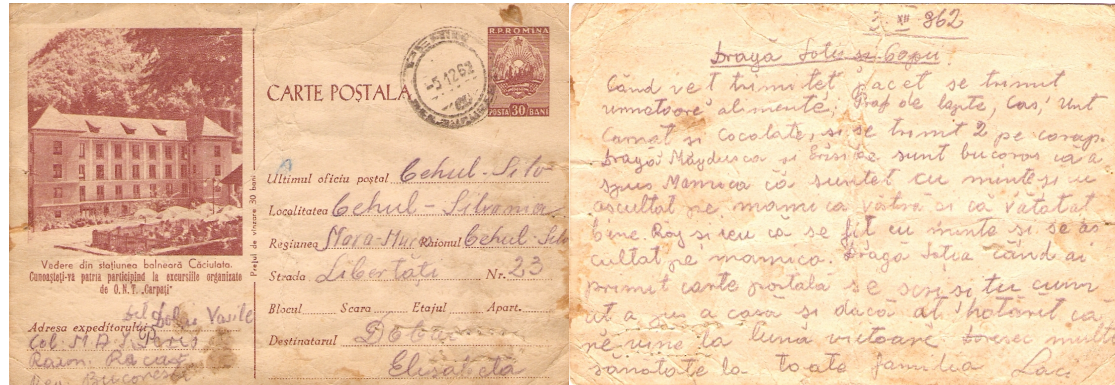 Vedere din stațiunea balneară Căciulata.
Cunoașteți-vă patria participînd la excursiile organizate
de O.N.T. „Carpați"
Adresa expeditorului Vasile
Prețul de vînzare 30 bani
CARTE POȘTALA
R.P.ROMINA
POSTA 30 BANI
-5.12.62
Ultimul oficiu poștal Cehul-Silv
Localitatea Cehul-Silvania
Regiunea Mara-Mur Raionul Cehul-Sil
Strada Libertăți Nr. 23
Blocul Scara Etajul Apart.
Destinatarul
Elisabetă
XII 962
Dragă Soție și Copii
Când veț trimitet pacet se trimit
urmatoare alimente; Praf de lapte, Caș, Unt
Carnat și Cocolate, și se trimit 2 pe
Dragă Măgdusca și sunt bucoros că a
spus Mamica că suntet cu minte și
ascultat pe mamica vostră și ca
bine Rog și ieu ca se fit cu minte și se as
cultat pe mamica. Dragă Soția când ai
primit carte portala se scrii tu cum
ai a casă și dacă at hotărit ca
vine la luna viitoare Doresc mult
sănătate la toate familia Laci